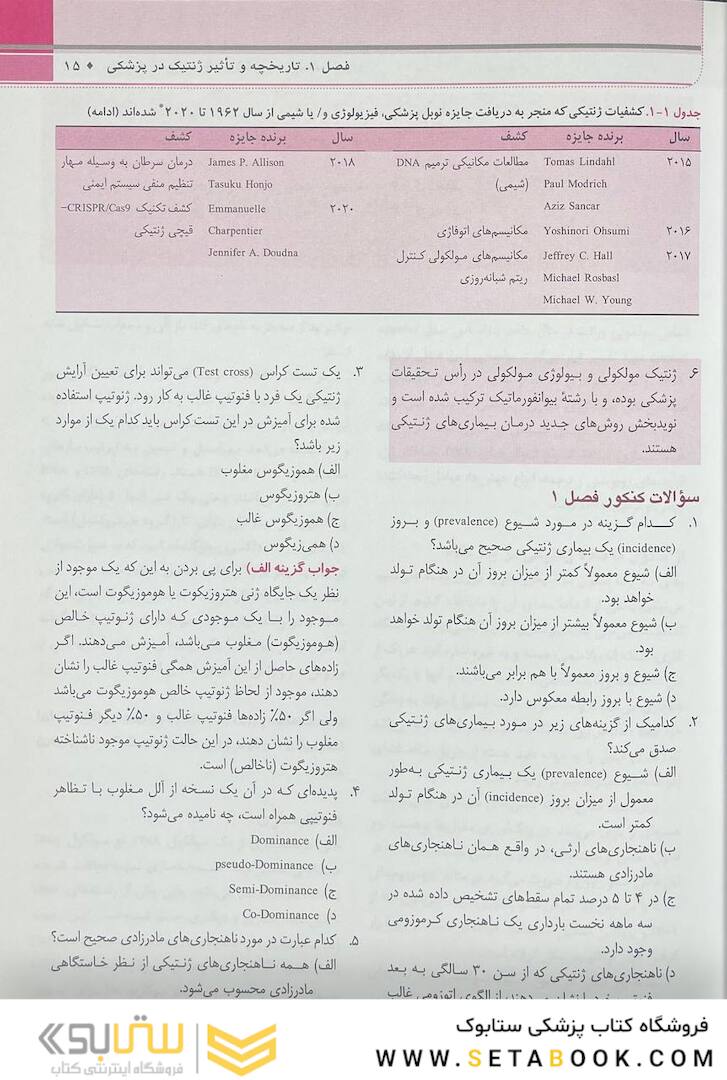 فصل ۱. تاریخچه و تأثیر ژنتیک در پزشکی ♦ ۱۵
جدول ۱-۱. کشفیات ژنتیکی که منجر به دریافت جایزه نوبل پزشکی، فیزیولوژی و/ یا شیمی از سال ۱۹۶۲ تا ۲۰۲۰* شده‌اند (ادامه)
سال برنده جایزه کشف سال برنده جایزه کشف
۲۰۱۵ Tomas Lindahl مطالعات مکانیکی ترمیم DNA ۲۰۱۸ James P. Allison درمان سرطان به وسیله مهار
Paul Modrich (شیمی) Tasuku Honjo تنظیم منفی سیستم ایمنی
Aziz Sancar ۲۰۲۰ Emmanuelle کشف تکنیک CRISPR/Cas9-
۲۰۱۶ Yoshinori Ohsumi مکانیسم‌های اتوفاژی Charpentier قیچی ژنتیکی
۲۰۱۷ Jeffrey C. Hall مکانیسم‌های مولکولی کنترل Jennifer A. Doudna
Michael Rosbasl ریتم شبانه‌روزی
Michael W. Young
۶. ژنتیک مولکولی و بیولوژی مولکولی در رأس تحقیقات
پزشکی بوده، و با رشتهٔ بیوانفورماتیک ترکیب شده است و
نویدبخش روش‌های جدید درمان بیماری‌های ژنتیکی
هستند.
سؤالات کنکور فصل ۱
۱. کدام گزینه در مورد شیوع (prevalence) و بروز
(incidence) یک بیماری ژنتیکی صحیح می‌باشد؟
الف) شیوع معمولاً کمتر از میزان بروز آن در هنگام تولد
خواهد بود.
ب) شیوع معمولاً بیشتر از میزان بروز آن هنگام تولد خواهد
بود.
ج) شیوع و بروز معمولاً با هم برابر می‌باشند.
د) شیوع با بروز رابطه معکوس دارد.
۲. کدامیک از گزینه‌های زیر در مورد بیماری‌های ژنتیکی
صدق می‌کند؟
الف) شیوع (prevalence) یک بیماری ژنتیکی به‌طور
معمول از میزان بروز (incidence) آن در هنگام تولد
کمتر است.
ب) ناهنجاری‌های ارثی، در واقع همان ناهنجاری‌های
مادرزادی هستند.
ج) در ۴ تا ۵ درصد تمام سقط‌های تشخیص داده شده در
سه ماهه نخست بارداری یک ناهنجاری کرموزومی
وجود دارد.
د) ناهنجاری‌های ژنتیکی که از سن ۳۰ سالگی به بعد
از الگوی اتوزومی غالب
۳. یک تست کراس (Test cross) می‌تواند برای تعیین آرایش
ژنتیکی یک فرد با فنوتیپ غالب به کار رود. ژنوتیپ استفاده
شده برای آمیزش در این تست کراس باید کدام یک از موارد
زیر باشد؟
الف) هموزیگوس مغلوب
ب) هتروزیگوس
ج) هموزیگوس غالب
د) همی‌زیگوس
جواب گزینه الف) برای پی بردن به این که یک موجود از
نظر یک جایگاه ژنی هتروزیکوت یا هوموزیگوت است، این
موجود را با یک موجودی که دارای ژنوتیپ خالص
(هوموزیگوت) مغلوب می‌باشد، آمیزش می‌دهند. اگر
زاده‌های حاصل از این آمیزش همگی فنوتیپ غالب را نشان
دهند، موجود از لحاظ ژنوتیپ خالص هوموزیگوت می‌باشد
ولی اگر ۵۰٪ زاده‌ها فنوتیپ غالب و ۵۰٪ دیگر فنوتیپ
مغلوب را نشان دهند، در این حالت ژنوتیپ موجود ناشناخته
هتروزیگوت (ناخالص) است.
۴. پدیده‌ای که در آن یک نسخه از آلل مغلوب با تظاهر
فنوتیپی همراه است، چه نامیده می‌شود؟
الف) Dominance
ب) pseudo-Dominance
ج) Semi-Dominance
د) Co-Dominance
۵. کدام عبارت در مورد ناهنجاری‌های مادرزادی صحیح است؟
الف) همه ناهنجاری‌های ژنتیکی از نظر خاستگاهی
مادرزادی محسوب می‌شود.
فروشگاه کتاب پزشکی ستابوک
WWW.SETABOOK.COM
ستابوک
فروشگاه اینترنتی کتاب